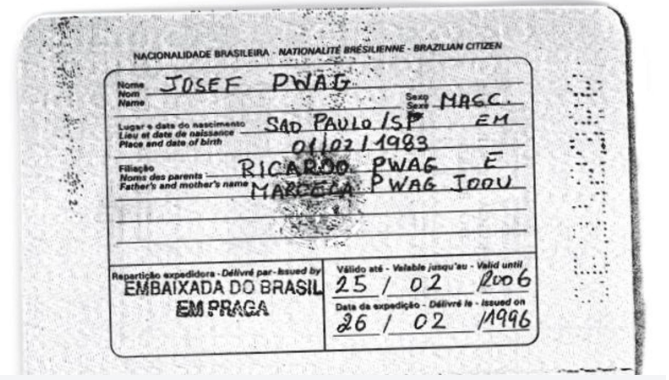 NACIONALIDADE BRASILEIRA - NATIONALITÉ BRÉSILIENNE - BRAZILIAN CITIZEN
Nome
Nom
Name
JOSEF PWAG
Sexo
Sexe
MASC.
Lugar e data do nascimento
Lieu et date de naissance
Place and date of birth
SAO PAULO/SP EM
01/02/1983
Filiação
Noms des parents
Father's and mother's name
RICARDO PWAG E
MARCELA PWAG
Repartição expedidora - Délivré par - Issued by
EMBAIXADA DO BRASIL
EM PRAGA
Válido até - Valable jusqu'au - Valid until
25 / 02 /2006
Data da expedição - Délivré le - Issued on
26 / 02 /1996